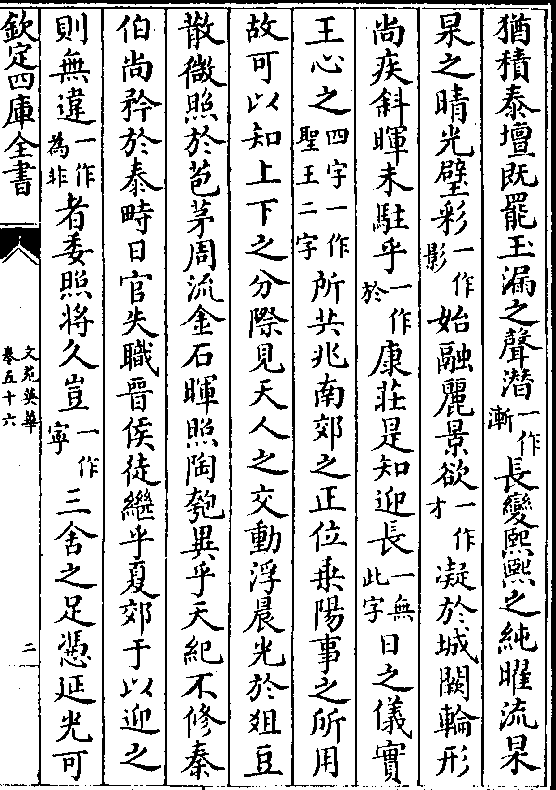 猶積泰壇既罷玉漏之聲潛一作漸長變熙熙之純曜流杲
杲之晴光璧彩一作影始融麗景欲一作才凝於城闕輪形
尚疾斜暉未駐乎一作於康莊是知迎長一無此字日之儀實
王心之四字一作聖王二字所共兆南郊之正位乗陽事之所用
故可以知上下之分際見天人之交動浮晨光於爼豆
散微照於苞茅周流金石暉照陶匏異乎天紀不修秦
伯尚矜於泰畤日官失職晉侯徒繼乎夏郊于以迎之
則無違一作為非者委照將久豈一作寧三舍之足憑延光可
欽定四庫全書
文苑英華
卷五十六
二